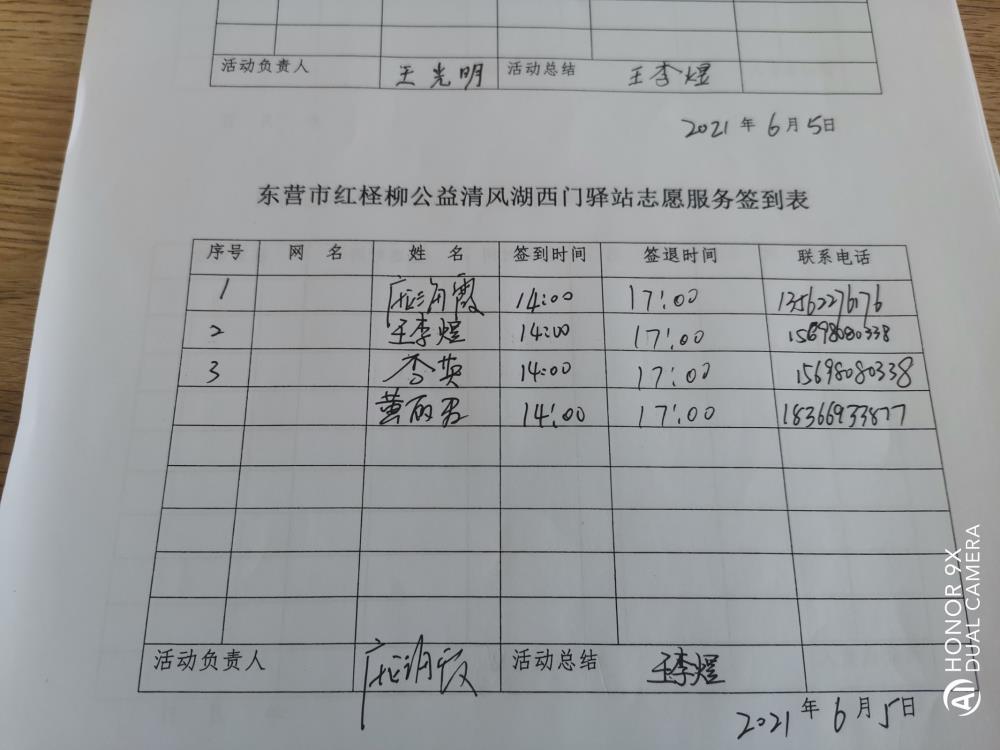 活动负责人 王光明 活动总结 王李煜
2021年6月5日
东营市红柽柳公益清风湖西门驿站志愿服务签到表
序号 网 名 姓 名 签到时间 签退时间 联系电话
1 霞 14:00 17:00 13562276176
2 王李煜 14:00 17:00 15698080338
3 李英 14:00 17:00 15698080338
黄丽君 14:00 17:00 18366933877
活动负责人 活动总结 王李煜
2021年6月5日
HONOR 9X
DUAL CAMERA
AI